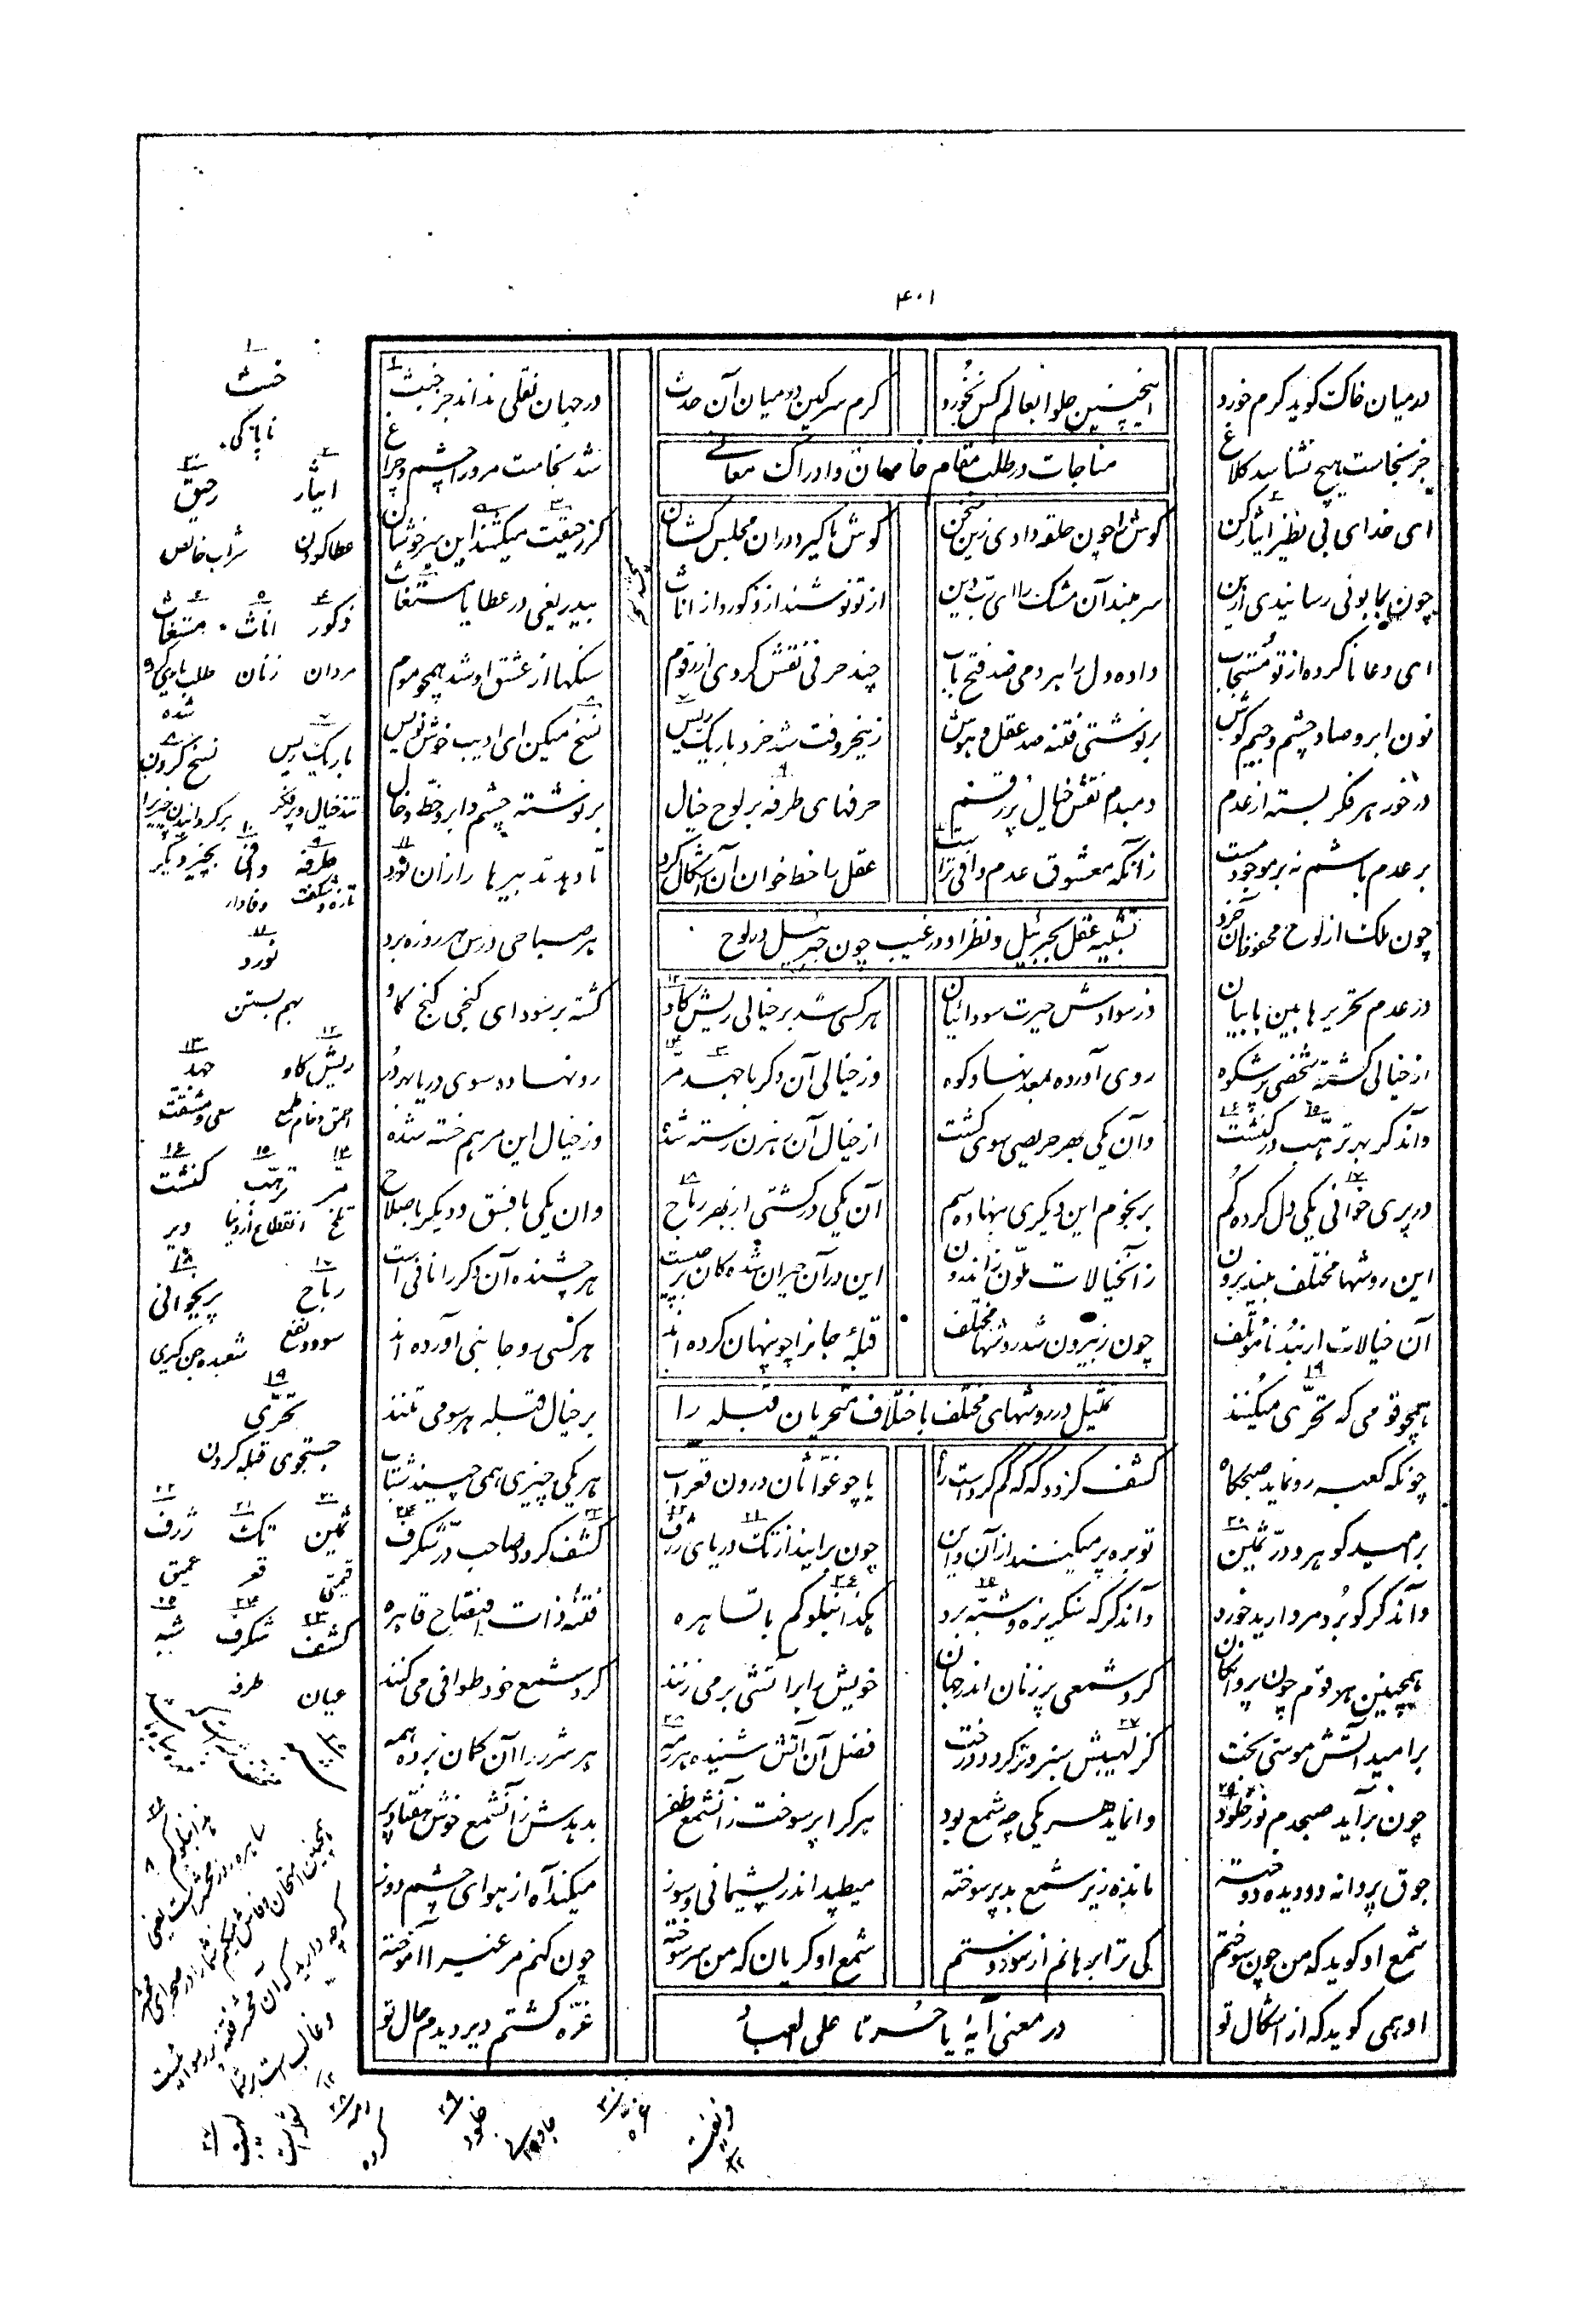 ۴۰۱
در میان خاک گوید کرم خورد
اینچنین حلوا بعالم کس نخورد
کرم سرگین در میان آن حدث
در جهان نقلی نداند جز خبث
مناجات در طلب مقام خاصان و ادراک معانی
جز نجاست هیچ نشناسد کلاغ
شد نجاست مر ورا چشم و چراغ
ای خدای بی نظیر ایثار کن
گوش را چون حلقه دادی زین سخن
گوش ما گیر و در آن مجلس کشان
کز رحیقت میکشند این سرخوشان
چون بما بوئی رسانیدی ازین
سر مبند آن مشک را ای رب دین
از تو نوشند از ذکور و از اناث
بیدریغی در عطا یا مستغاث
ای دعا ناکرده از تو مستجاب
داده دل را هر دمی صد فتح باب
چند حرفی نقش کردی از رقوم
سنگها از عشق او شد همچو موم
نون ابرو صاد چشم و جیم گوش
بر نوشتی فتنه صد عقل و هوش
زین حروفت شد خرد باریک ریس
نسخ میکن ای ادیب خوش نویس
در خور هر فکر بسته از عدم
دمبدم نقش خیال پر رقم
حرفهای طرفه بر لوح خیال
بر نوشته چشم و ابرو خط و خال
بر عدم باشم نه بر موجود مست
زانکه معشوق عدم وافی ترست
عقل را خط خوان آن اشکال کرد
تا دهد تدبیرها را زان نورد
تشبیه عقل بجبرئیل و نظر او در غیب چون جبرئیل در لوح
چون ملک از لوح محفوظ آن خرد
هر صباحی درس هر روزه برد
در عدم تحریرها بین با بیان
وز سوادش حیرت سودائیان
هر کسی شد بر خیالی ریش گاو
گشته بر سودای گنجی کنج کاو
از خیالی گشته شخصی پر شکوه
روی آورده بمعدنهاد کوه
وز خیالی آن دگر با جهد مر
رو نهاده سوی دریا بهر در
واندگر بهر ترهب در کنشت
وآن یکی بهر حریصی سوی کشت
از خیال آن رهزن رسته شده
وز خیال این مرهم خسته شده
در پری خوانی یکی دل کرده گم
بر نجوم این دیگری بنهاده سم
آن یکی در کشتی از بهر رباح
وان یکی با فسق و دیگر با صلاح
این روشها مختلف بیند برون
زآن خیالات ملون زاندرون
این در آن حیران شده کان بر چیست
هر چشنده آن دگر را نافی است
آن خیالات ار نبد نامؤتلف
چون ز بیرون شد روشها مختلف
قبله جانرا چو پنهان کرده اند
هر کسی رو جانبی آورده اند
تمثیل در روشهای مختلف باختلاف متحریان قبله را
همچو قومی که تحری میکنند
بر خیال قبله هر سو می تنند
چونکه کعبه رو نماید صبحگاه
کشف گردد که که گم کرد است راه
یا چو غواصان درون قعر آب
هر یکی چیزی همی چیند شتاب
بر امید گوهر و در ثمین
توبره پر میکنند از آن و این
چون برایند از تک دریای ژرف
کشف گردد صاحب در شگرف
واندگر کو برد مروارید خورد
واندگر که سنگریزه و شبه برد
هکذا نبلوکم بالساهره
فتنه ذات افتضاح قاهره
همچنین هر قوم چون پروانگان
گرد شمعی پر زنان اندر جهان
خویش را بر آتشی بر می زنند
گرد شمع خود طوافی می کنند
بر امید آتش موسی بخت
کز لهیبش سبز و تر گردد درخت
فضل آن آتش شنیده هر رمه
هر شرر را آن گمان برده همه
چون برآید صبحدم نور خلود
وانماید هر یکی چه شمع بود
هر کرا پر سوخت زان شمع ظفر
بدهدش زان شمع خوش هفتاد پر
جوق پروانه دو دیده دوخته
مانده زیر شمع بد پر سوخته
میطپد اندر پشیمانی و سوز
میکند آه از هوای چشم دوز
شمع او گوید که من چون سوختم
کی ترا برهانم از سوز و ستم
شمع او گریان که من سر سوخته
چون کنم مر غیر را آموخته
در معنی آیهٔ یا حسرتا علی العباد
او همی گوید که از اشکال تو
غره گشتم دیر دیدم حال تو
۱ خبث
ناپاکی
۲ ایثار ۳ رحیق
عطا کردن شراب خالص
۴ ذکور ۵ اناث ۶ مستغاث
مردان زنان طلب یاری کرده شده
۷ باریک ریس ۸ نسخ کردن
تند خیال و پر فکر
۹ طرفه ۱۰ وافی
تازه و شگفت وفادار
۱۱ نورد
بهم بستن
۱۲ ریش گاو ۱۳ جهد
احمق و خام طمع سعی و مشقت
۱۴ مر ۱۵ ترهب ۱۶ کنشت
تلخ انقطاع از دنیا دیر
رباح پریخوانی
سود و نفع شعبده جن گیری
۱۹ تحری
جستجوی قبله کردن
۲۰ ثمین ۲۱ تک ۲۲ ژرف
قیمتی قعر عمیق
۲۳ کشف ۲۴ شگرف ۲۵ شبه
عیان طرفه